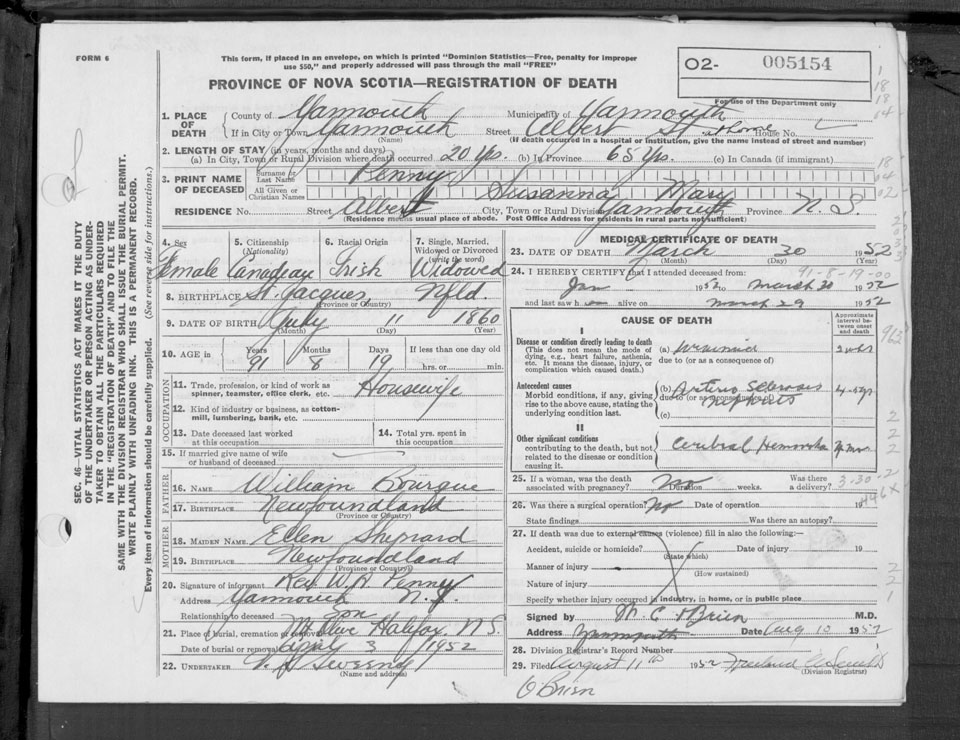 FORM 6
This form, if placed in an envelope, on which is printed "Dominion Statistics—Free, penalty for improper
use $50," and properly addressed will pass through the mail "FREE"
PROVINCE OF NOVA SCOTIA—REGISTRATION OF DEATH
O2- 005154
For use of the Department only
1. PLACE OF DEATH
County of Yarmouth Municipality of Yarmouth
If in City or Town Yarmouth Street Albert St at home House No.
(Name) (If death occurred in a hospital or institution, give the name instead of street and number)
2. LENGTH OF STAY (in years, months and days)
(a) In City, Town or Rural Division where death occurred 20 Yrs. (b) In Province 65 Yrs. (c) In Canada (if immigrant)
3. PRINT NAME OF DECEASED
Surname or Last Name Penny
All Given or Christian Names Susanna Mary
RESIDENCE No. Street Albert City, Town or Rural Division Yarmouth Province N. S.
(Residence means usual place of abode. Post Office Address for residents in rural parts not sufficient)
4. Sex Female
5. Citizenship (Nationality) Canadian
6. Racial Origin Irish
7. Single, Married, Widowed or Divorced (write the word) Widowed
8. BIRTHPLACE St. Jacques Nfld.
(Province or Country)
9. DATE OF BIRTH July 11 1860
(Month) (Day) (Year)
10. AGE in Years 91 Months 8 Days 19 If less than one day old
hrs. or min.
OCCUPATION
11. Trade, profession, or kind of work as spinner, teamster, office clerk, etc. Housewife
12. Kind of industry or business, as cotton-mill, lumbering, bank, etc.
13. Date deceased last worked at this occupation
14. Total yrs. spent in this occupation
15. If married give name of wife or husband of deceased
FATHER
16. NAME William Bourque
17. BIRTHPLACE Newfoundland
(Province or Country)
MOTHER
18. MAIDEN NAME Ellen Sheppard
19. BIRTHPLACE Newfoundland
(Province or Country)
20. Signature of informant Rev W. H. Penny
Address Yarmouth N. S.
Relationship to deceased Son
21. Place of burial, cremation or removal Mt Olive Halifax N S
Date of burial or removal April 3 1952
22. UNDERTAKER V. S. Sweeny
(Name and address)
MEDICAL CERTIFICATE OF DEATH
23. DATE OF DEATH March 30 1952
(Month) (Day) (Year)
24. I HEREBY CERTIFY that I attended deceased from: 91-8-19-00
Jan 1952 to March 30 1952
and last saw h alive on March 29 1952
CAUSE OF DEATH
Approximate interval between onset and death
I
Disease or condition directly leading to death
(This does not mean the mode of dying, e.g., heart failure, asthenia, etc. It means the disease, injury, or complication which caused death.)
(a)
due to (or as a consequence of)
Antecedent causes
Morbid conditions, if any, giving rise to the above cause, stating the underlying condition last.
(b) Arterio Sclerosis
due to (or as a consequence of)
Nephritis
(c)
II
Other significant conditions
contributing to the death, but not related to the disease or condition causing it.
Cerebral
25. If a woman, was the death associated with pregnancy? No Duration weeks. Was there a delivery?
26. Was there a surgical operation? No Date of operation 19
State findings Was there an autopsy?
27. If death was due to external causes (violence) fill in also the following:—
Accident, suicide or homicide? Date of injury 19
(State which)
Manner of injury
(How sustained)
Nature of injury
Specify whether injury occurred in industry, in home, or in public place
Signed by M. C. O'Brien M.D.
Address Yarmouth Date Aug 10 1952
28. Division Registrar's Record Number
29. Filed August 11th 1952
(Division Registrar)
O'Brien
SEC. 46—VITAL STATISTICS ACT MAKES IT THE DUTY
OF THE UNDERTAKER OR PERSON ACTING AS UNDER-
TAKER TO OBTAIN ALL THE PARTICULARS REQUIRED
IN THE "REGISTRATION OF DEATH" AND TO FILE THE
SAME WITH THE DIVISION REGISTRAR WHO SHALL ISSUE THE BURIAL PERMIT.
WRITE PLAINLY WITH UNFADING INK. THIS IS A PERMANENT RECORD.
Every item of information should be carefully supplied. (See reverse side for instructions.)